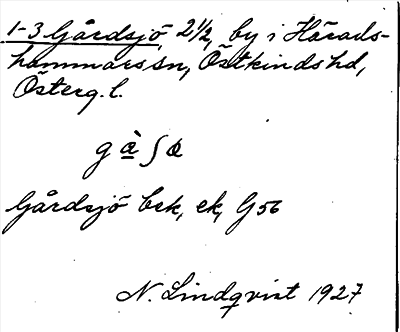 1-3 Gårdsjö, 2 1/2, by i Härads-
hammars sn, Östkinds hd,
Österg. l.
g à ʃ ö
Gårdsjö bek, ek, G 56
N. Lindqvist 1927